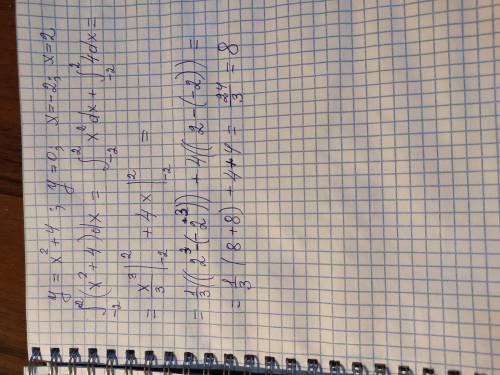 y = x² + 4 ; y = 0; x = -2; x = 2
∫₋₂² (x² + 4) dx = ∫₋₂² x² dx + ∫₋₂² 4 dx =
= x³/3 |₋₂² + 4x |₋₂² =
= 1/3 ((2³ - (-2³)) + 4((2 - (-2)) =
= 1/3 (8 + 8) + 4 + 4 = 24/3 = 8